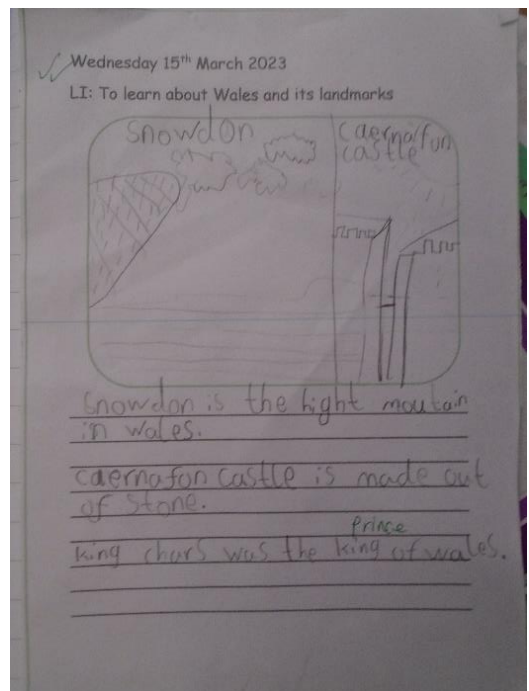 Wednesday 15th March 2023
LI: To learn about Wales and its landmarks
Snowdon
Caernafon
castle
Snowdon is the hight moutain
in wales.
caernafon castle is made out
of stone.
Prince
king chars was the king of wales.